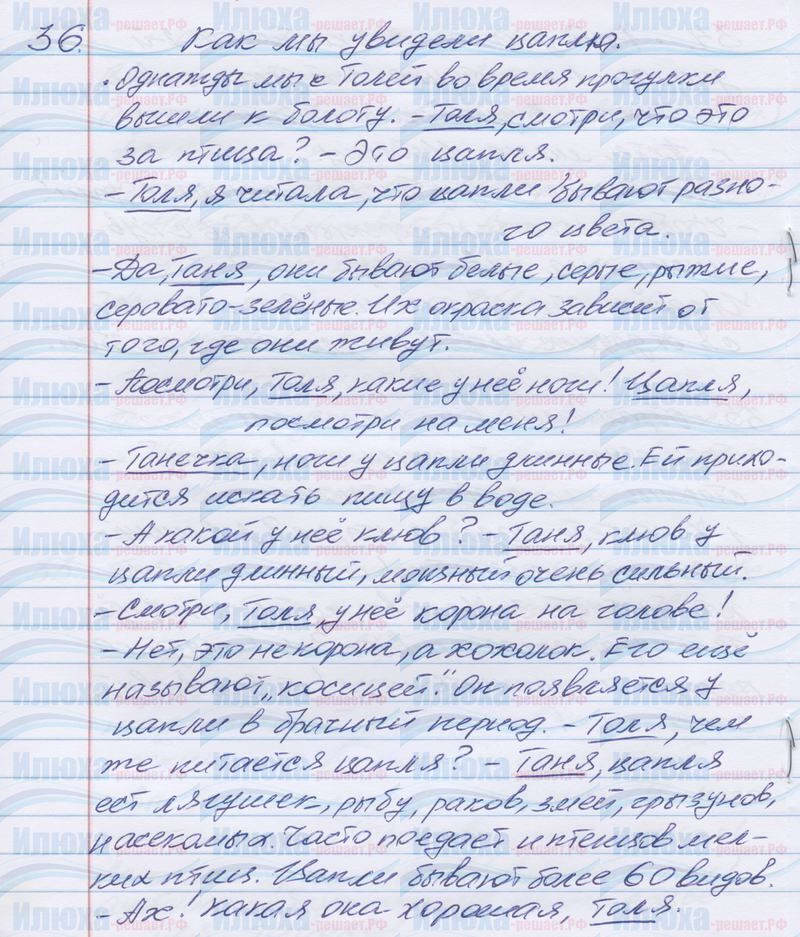 36. Как мы увидели цаплю.
Однажды мы с Толей во время прогулки
вышли к болоту. – Толя, смотри, что это
за птица? – Это цапля.
– Толя, я читала, что цапли бывают разно-
го цвета.
– Да, Таня, они бывают белые, серые, рыжие,
серовато-зелёные. Их окраска зависит от
того, где они живут.
– Посмотри, Толя, какие у неё ноги! Цапля,
посмотри на меня!
– Танечка, ноги у цапли длинные. Ей прихо-
дится искать пищу в воде.
– А какой у неё клюв? – Таня, клюв у
цапли длинный, мощный очень сильный.
– Смотри, Толя, у неё корона на голове!
– Нет, это не корона, а хохолок. Его ещё
называют „косицей“. Он появляется у
цапли в брачный период. – Толя, чем
же питается цапля? – Таня, цапля
ест лягушек, рыбу, раков, змей, грызунов,
насекомых. Часто поедает и птенцов мел-
ких птиц. Цапли бывают более 60 видов.
– Ах! Какая она хорошая, Толя.
Илюха-решает.РФ